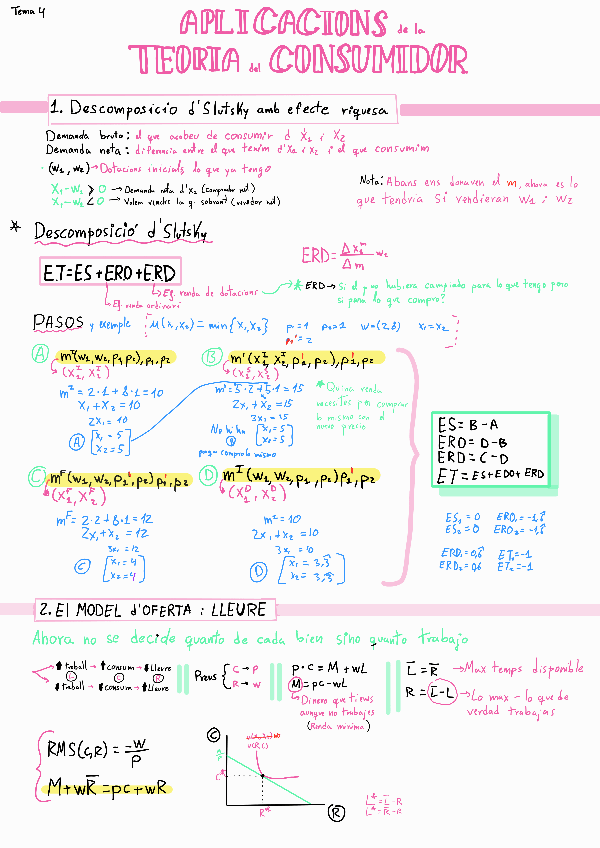 Tema 4
APLICACIONS de la
TEORIA del CONSUMIDOR
1. Descomposicio d'Slutsky amb efecte riquesa
Demanda bruta: el que acabeu de consumir d X₁ i X₂
Demanda neta: diferencia entre el que tenim d'X₁ i X₂ i el que consumim
(w₁, w₂) → Dotacions inicials lo que ya tengo
X₁-w₁ > 0 → Demanda neta d'x₁ (comprador net)
X₁-w₁ < 0 → Volem vendre la q. sobrant (venedor net)
Nota: Abans ens donaven el m, ahora es lo
que tendria si vendieran w₁ i w₂
* Descomposició d'Slutsky
ERD = Δx₁ᵐ/Δm w₂
ET=ES+ERO+ERD
Ef. renda de dotacions
Ef. renda ordinari
* ERD → Si el p no hubiera cambiado para lo que tengo pero
si para lo que compro?
PASOS y exemple μ(x₁,x₂)=min{x₁,x₂} p₁=1 p₂=1 w=(2,8) x₁=x₂
p₁'=2
A mᴵ(w₁,w₂,p₁,p₂),p₁,p₂
(X₁ᴵ X₂ᴵ)
mᴵ=2·1+8·1=10
X₁+X₂=10
2X₁=10
A [X₁=5
X₂=5]
B m'(X₁ᴵ, X₂ᴵ, p₁', p₂), p₁', p₂
(X₁ˢ, X₂ˢ)
m'=5·2+5·1=15
2X₁+X₂=15
3X₁=15
No hi ha
B [X₁=5
X₂=5]
* Quina renda
necesitas per comprar
lo mismo con el
nuevo precio
C mꟳ(w₁,w₂,p₁',p₂)p₁',p₂
(X₁ꟳ, X₂ꟳ)
mꟳ=2·2+8·1=12
2X₁+X₂=12
3X₁=12
C [X₁=4
X₂=4]
D mᴵ(w₁,w₂,p₁,p₂)p₁',p₂
(X₁ᴰ, X₂ᴰ)
mᴵ=10
2X₁+X₂=10
3X₁=10
D [X₁=3,3
X₂=3,3]
ES=B-A
ERO=D-B
ERD=C-D
ET=ES+ERO+ERD
ES₁=0 ERO₁=-1,6
ES₂=0 ERO₂=-1,6
ERD₁=0,6 ET₁=-1
ERD₂=0,6 ET₂=-1
2. El MODEL d'OFERTA : LLEURE
Ahora no se decide quanto de cada bien sino quanto trabajo
⬆traball → ⬆consum → ⬇lleure
L C R
⬇traball → ⬇consum → ⬆lleure
Preus { C → P
R → w
p·c=M+wL
M=pc-wL
Dinero que tienes
aunque no trabajes
(Renda minima)
L̄=R̄ → Max temps disponible
R=L̄-L → Lo max - lo que de
verdad trabajas
RMS(C,R)=-w/p
M+wR̄=pc+wR
C
C*
R*
R
L*=L̄-R
L*=R̄-R